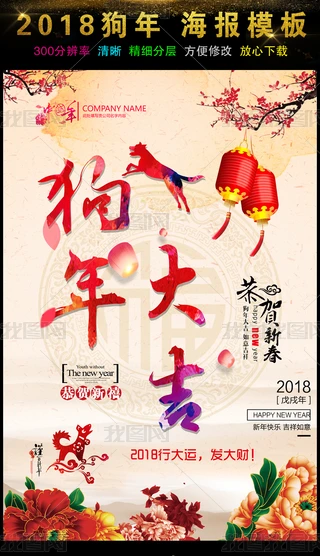 2018狗年 海报模板
300分辨率 清晰 精细分层 方便修改 放心下载
COMPANY NAME
狗年大吉
恭贺新春
happy new year
狗年大吉 如意吉祥
Youth without
The new year
恭贺新福
2018
[戊戌年]
HAPPY NEW YEAR
新年快乐 吉祥如意
2018行大运，发大财!